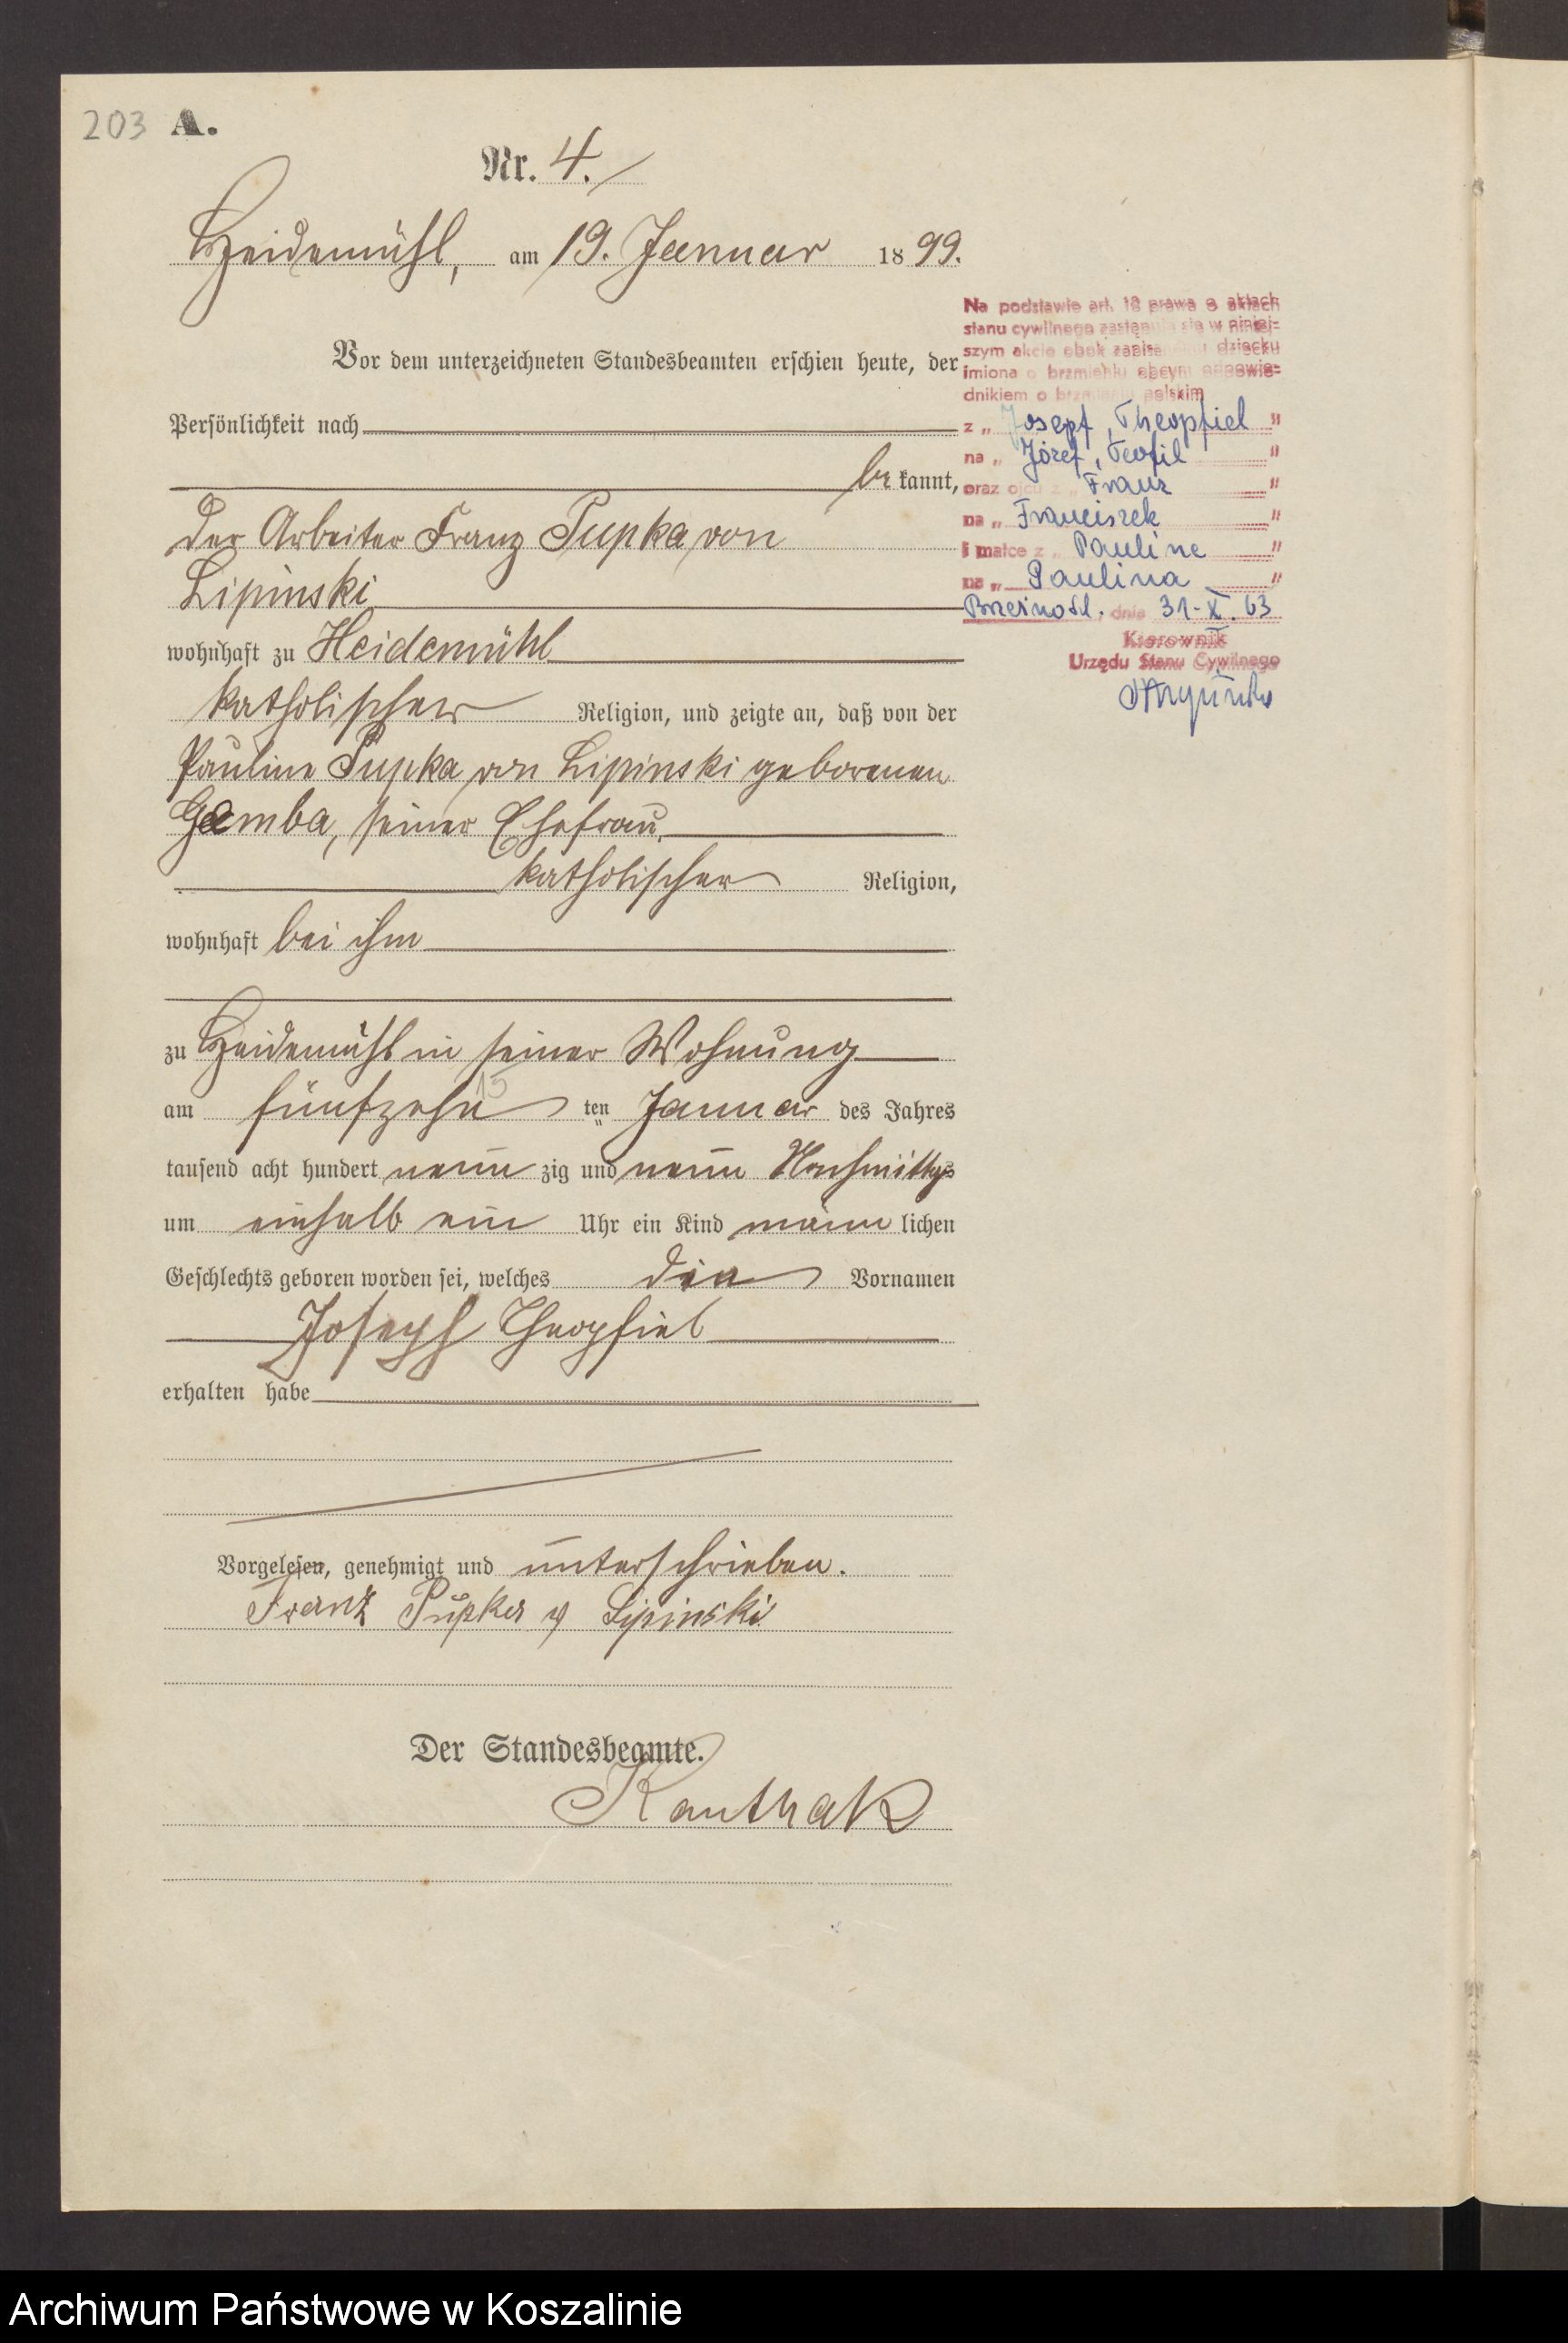 203 A.
Nr. 4.
Heidemühl, am 19. Januar 1899.
Vor dem unterzeichneten Standesbeamten erschien heute, der
Persönlichkeit nach
bekannt,
der Arbeiter Franz Pupka von
Lipinski
wohnhaft zu Heidemühl
katholischer Religion, und zeigte an, daß von der
Pauline Pupka von Lipinski geborenen
Gemba, seiner Ehefrau,
katholischer Religion,
wohnhaft bei ihm
zu Heidemühl in seiner Wohnung
am fünfzehn 15 ten Januar des Jahres
tausend acht hundert neun zig und neun Nachmittags
um einhalb ein Uhr ein Kind männlichen
Geschlechts geboren worden sei, welches die Vornamen
Joseph Theophiel
erhalten habe
Vorgelesen, genehmigt und unterschrieben.
Franz Pupka v Lipinski
Der Standesbeamte.
Kanthak
Na podstawie art. 18 prawa o aktach
stanu cywilnego zastępuje się w niniej-
szym akcie obok zapisanego dziecku
imiona o brzmieniu obcym odpowie-
dnikiem o brzmieniu polskim
z „ Josepf, Theopfiel "
na „ Józef, Teofil "
oraz ojcu z „ Franz "
na „ Franciszek "
i matce z „ Pauline "
na „ Paulina "
dnia 31-X.63
Kierownik
Urzędu Stanu Cywilnego
Archiwum Państwowe w Koszalinie